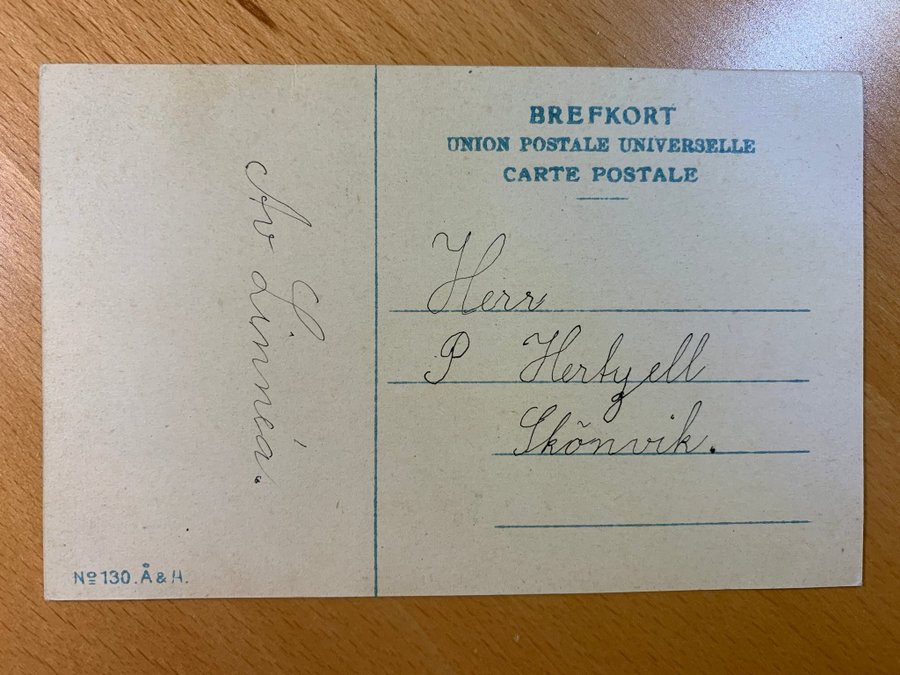 BREFKORT
UNION POSTALE UNIVERSELLE
CARTE POSTALE
Herr
P Hertzell
Skönvik.
Av Linnéa.
Nº 130. Å & H.